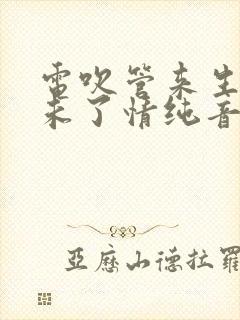 电吹管来生
未了情纯音
亚历山德拉罗